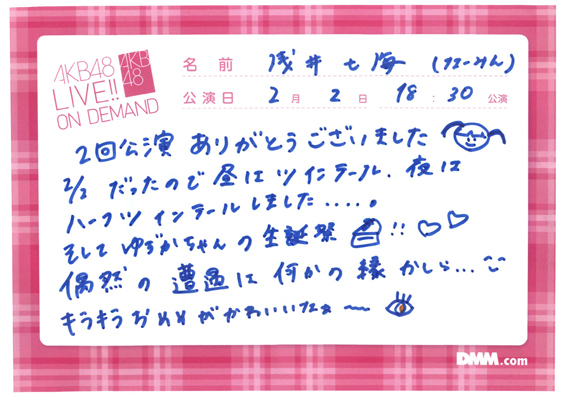 AKB48
LIVE!!
ON DEMAND
AKB
48
名 前 浅井七海 (なーみん)
公演日 2月 2日 18:30公演
2回公演 ありがとうございました
2/2 だったので昼はツインテール、夜は
ハーフツインテールしました.....。
そして ゆづかちゃんの生誕祭 !! ♡♡
偶然の遭遇は何かの縁かしら...
キラキラおめめがかわいいなぁ〜
DMM.com